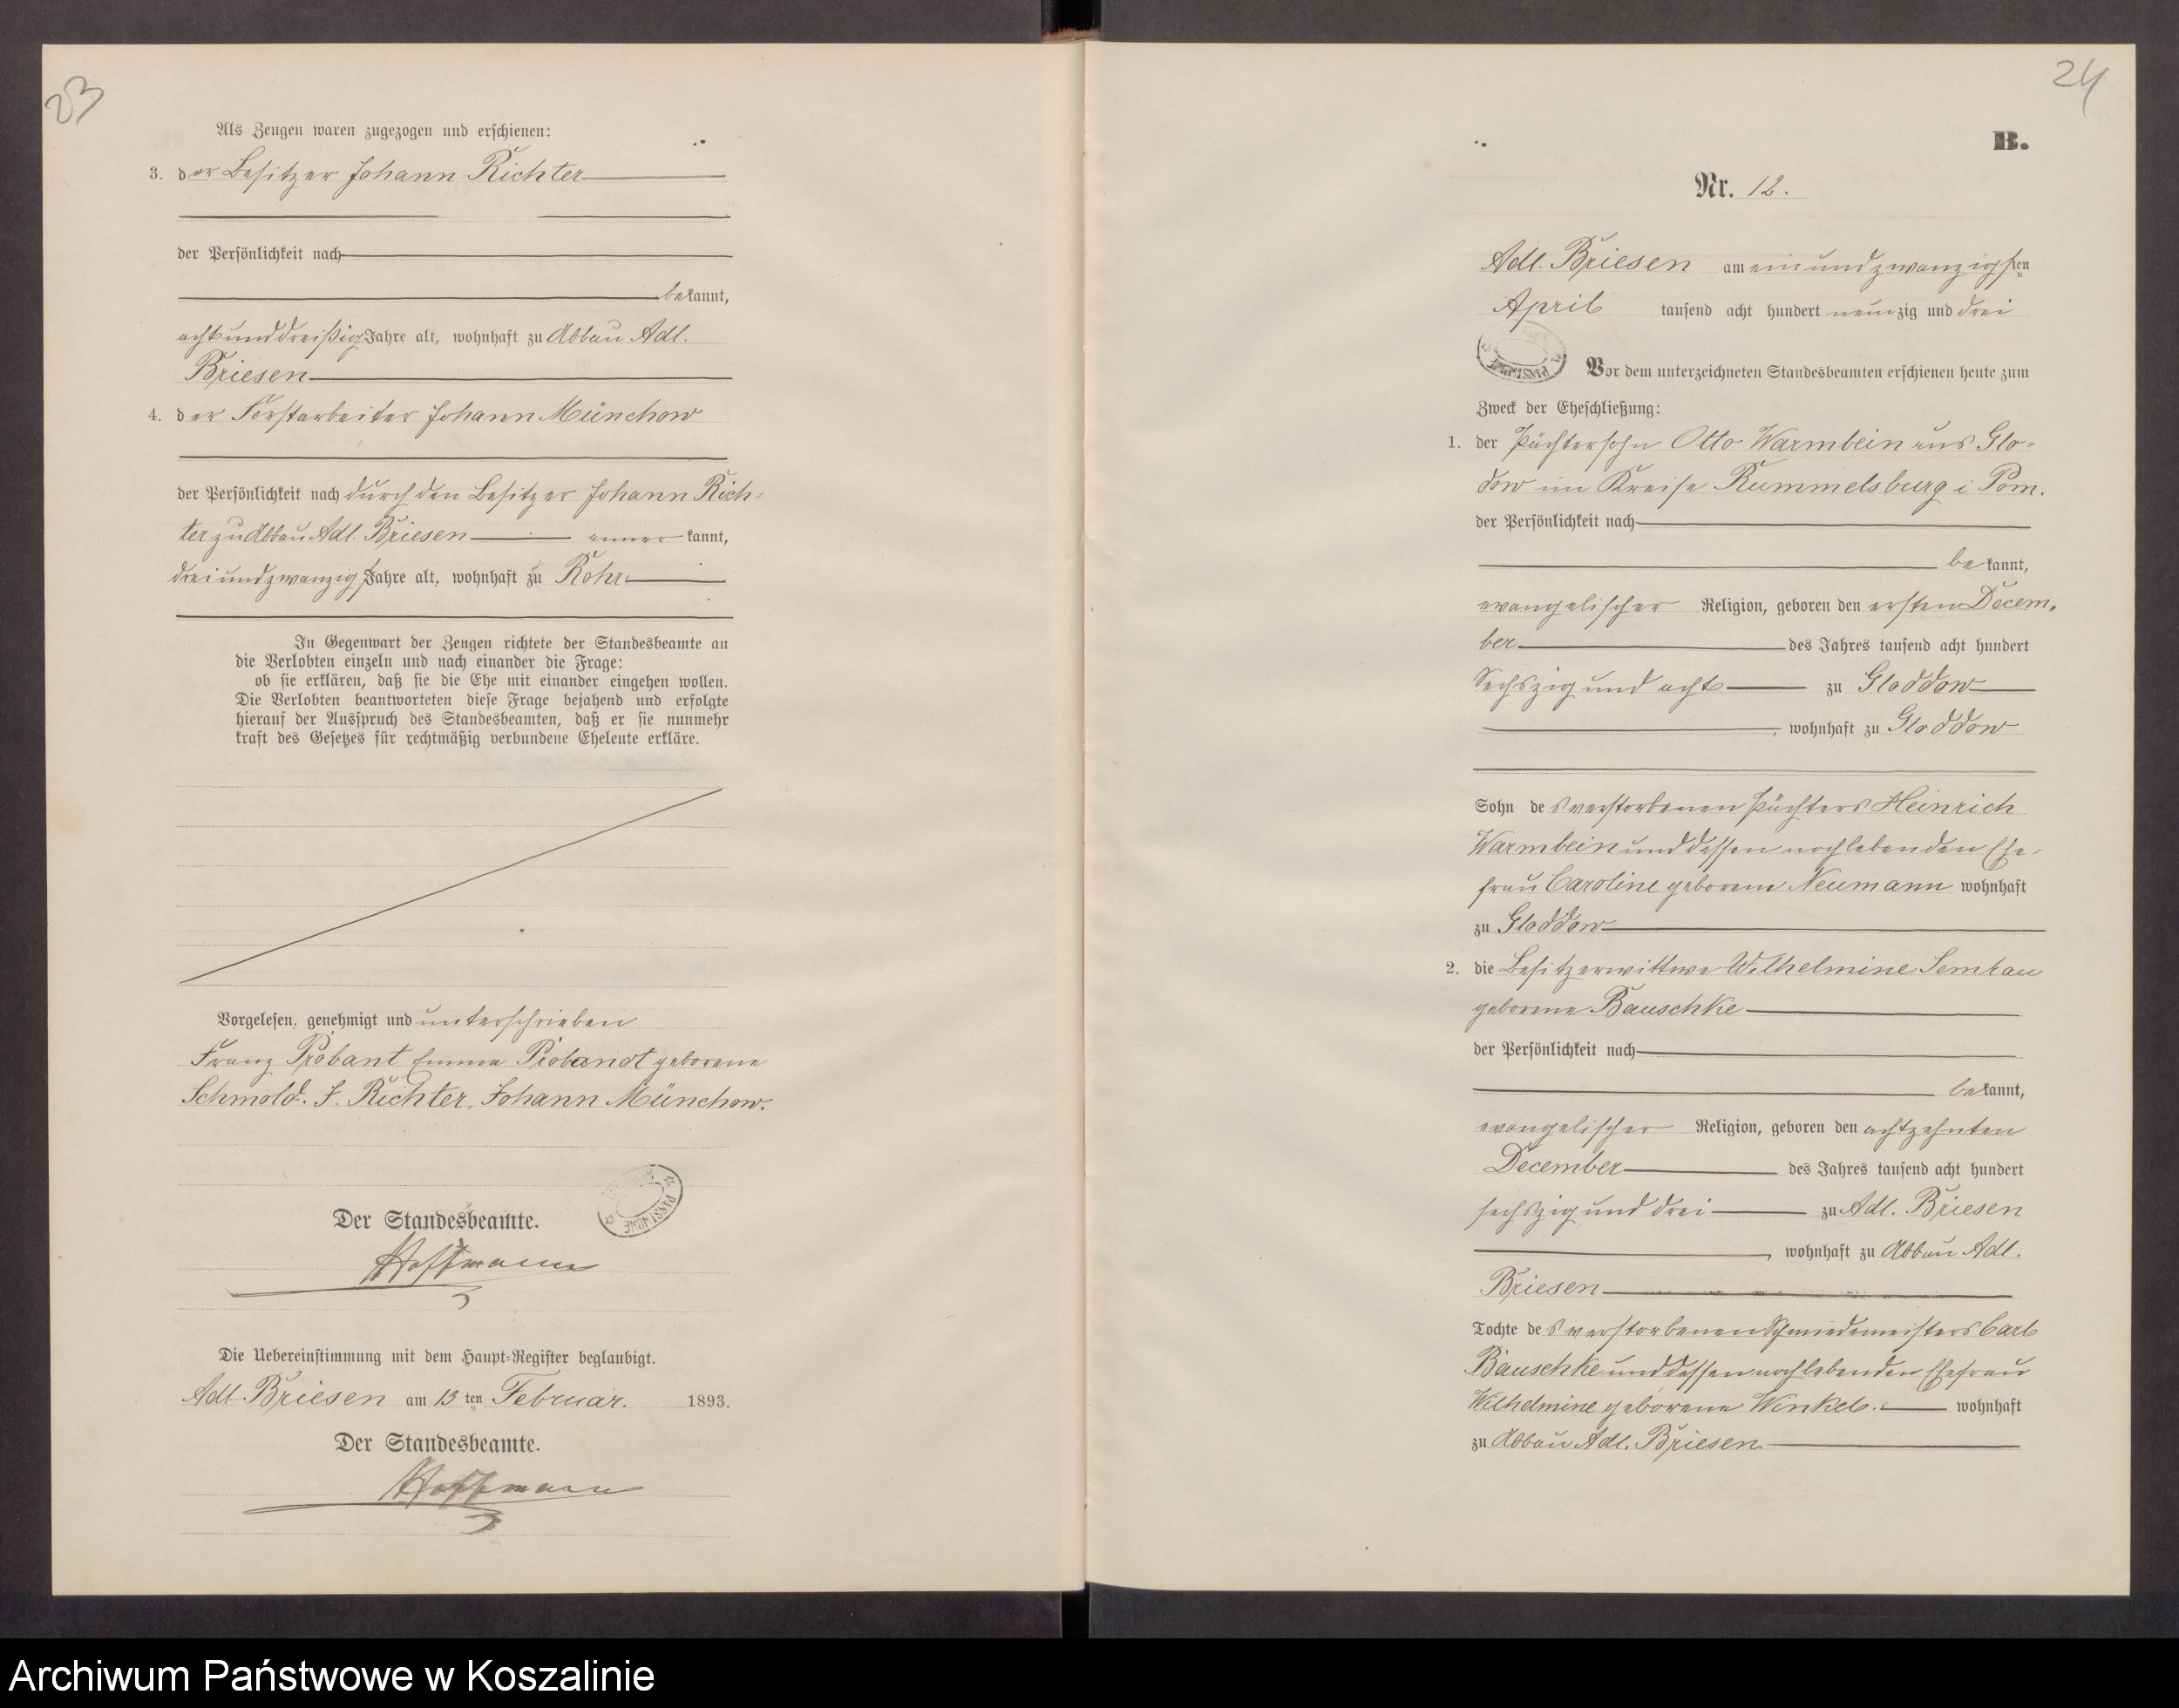 23
Als Zeugen waren zugezogen und erschienen:
3. der Besitzer Johann Richter
der Persönlichkeit nach
bekannt,
achtunddreißig Jahre alt, wohnhaft zu Abbau Adl.
Briesen
4. der Forstarbeiter Johann Münchow
der Persönlichkeit nach durch den Besitzer Johann Rich-
ter zu Abbau Adl. Briesen anner kannt,
dreiundzwanzig Jahre alt, wohnhaft zu Rohr
In Gegenwart der Zeugen richtete der Standesbeamte an
die Verlobten einzeln und nach einander die Frage:
ob sie erklären, daß sie die Ehe mit einander eingehen wollen.
Die Verlobten beantworteten diese Frage bejahend und erfolgte
hierauf der Ausspruch des Standesbeamten, daß er sie nunmehr
kraft des Gesetzes für rechtmäßig verbundene Eheleute erkläre.
Vorgelesen, genehmigt und unterschrieben
Franz Probant Emma Probandt geborene
Schmold. J. Richter, Johann Münchow.
Der Standesbeamte.
Hoffmann
Die Uebereinstimmung mit dem Haupt-Register beglaubigt.
Adl. Briesen am 13ten Februar. 1893.
Der Standesbeamte.
Hoffmann
24
B.
Nr. 12.
Adl. Briesen am einundzwanzigsten
April tausend acht hundert neunzig und drei
Vor dem unterzeichneten Standesbeamten erschienen heute zum
Zweck der Eheschließung:
1. der Pächtersohn Otto Warmbein aus Glo-
dow im Kreise Rummelsburg i Pom.
der Persönlichkeit nach
bekannt,
evangelischer Religion, geboren den ersten Decem-
ber des Jahres tausend acht hundert
sechszig und acht zu Gloddow
, wohnhaft zu Gloddow
Sohn des verstorbenen Pächters Heinrich
Warmbein und dessen noch lebenden Ehe-
frau Caroline geborene Neumann wohnhaft
zu Gloddow
2. die Besitzerwittwe Wilhelmine Semrau
geborene Bauschke
der Persönlichkeit nach
bekannt,
evangelischer Religion, geboren den achtzehnten
December des Jahres tausend acht hundert
sechszig und drei zu Adl. Briesen
, wohnhaft zu Abbau Adl.
Briesen
Tochte des verstorbenen Schmiedemeisters Carl
Bauschke und dessen noch lebenden Ehefrau
Wilhelmine geborene Winkel. wohnhaft
zu Abbau Adl. Briesen
Archiwum Państwowe w Koszalinie